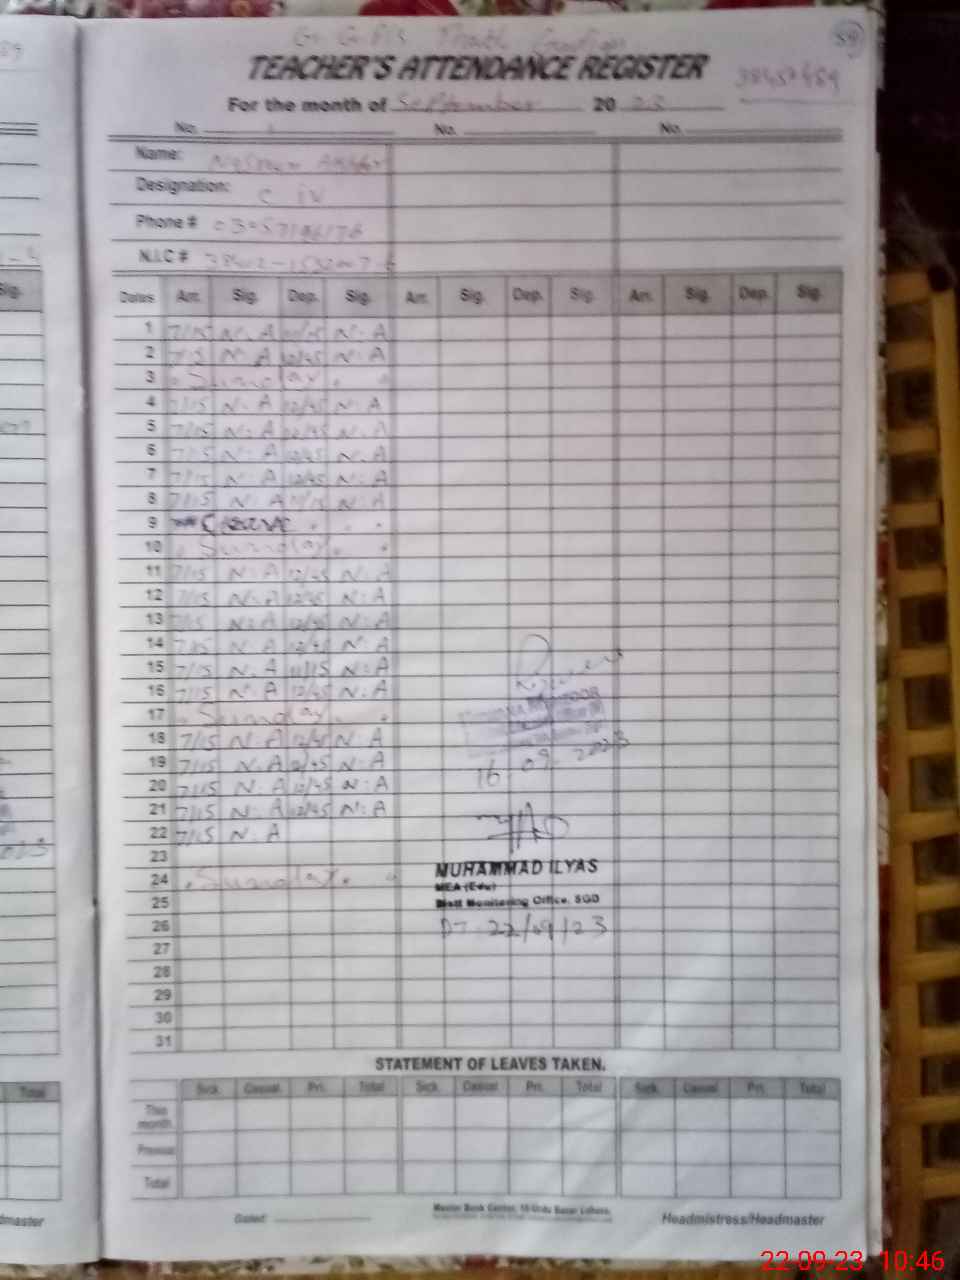 59
G. G. P/S Thatti
TEACHER'S ATTENDANCE REGISTER
38457459
For the month of September 2023
No. 1 No. No.
Name:
Designation: C IV
Phone #
N.I.C #
Dates Arr. Sig. Dep. Sig. Arr. Sig. Dep. Sig. Arr. Sig. Dep. Sig.
1 7/15 N. A N. A
2 7/15 N. A 12/45 N. A
3 Sunday
4 7/15 N. A 12/45 N. A
5 7/15 N. A 12/45 N. A
6 7/15 N. A 12/45 N. A
7 7/15 N. A 12/45 N. A
8 7/15 N. A 11/15 N. A
9
10 Sunday
11 7/15 N. A 12/45 N. A
12 7/15 N. A 12/45 N. A
13 7/15 N. A 12/45 N. A
14 7/15 N. A 12/45 N. A
15 7/15 N. A 11/15 N. A
16 7/15 N. A 12/45 N. A
17 Sunday
18 7/15 N. A 12/45 N. A
19 7/15 N. A 12/45 N. A
16.09.2023
20 7/15 N. A 12/45 N. A
21 7/15 N. A 12/45 N. A
22 7/15 N. A
23
24 Sunday
MUHAMMAD ILYAS
MEA (Edu)
25
Distt Monitoring Office, SGD
26
DT 22/09/23
27
28
29
30
31
STATEMENT OF LEAVES TAKEN.
Sick Casual Pri. Total Sick Casual Pri. Total Sick Casual Pri. Total
This month
Previous
Total
Dated
Master Book Center, 10-Urdu Bazar Lahore.
Headmistress/Headmaster
22-09-23 10:46